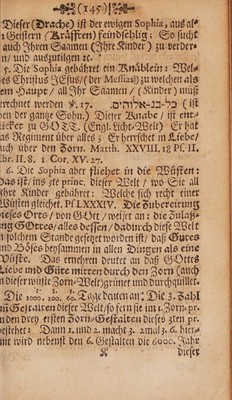 (145)
Dieser (Drache) ist der ewigen Sophia, aus al-
Geistern (Kräfften) feindschlig: So sucht
auch Ihren Saamen (Ihre Kinder) zu verder-
und auszutilgen ꝛc.
5. Die Sophia gebährt ein Knäblein: Wel-
es Christus JEsus/ (der Messias) zu welchen als
em Haupt/ all Ihr Saamen / (Kinder) müß
gerechnet werden ꝟ. 17. כל-בכ-אלוהים. (ist
er gantze Sohn.) Dieser Knabe / ist ent-
cket zu GOTT. (Engl. Licht-Welt) Er hat
as Regiment über alles: Er herrschet in Liebe/
auch über den Zorn. Matth. XXVIII, 18 Pf II.
br. II. 8. 1. Cor. XV. 27.
6. Die Sophia aber fliehet in die Wüsten:
Das ist/ ins 3te princ. dieser Welt / wo Sie all
re Kinder gebährt: Welche sich recht einer
Wüsten gleichet. Pf LXXXIV. Die Zubereitung
ieses Orts / von GOtt / weiset an: die Zulas-
ng GOttes/ alles dessen / dadurch diese Welt
n solchem Stande gesetzet worden ist/ daß Gutes
und Böses beysammen in allen Dingen als eine
Wüste. Das ernehren deutet an daß GOttes
Liebe und Güte mitten durch den Zorn (auch
n dieser wüste Zorn-Welt) grünet und durchquillet.
Die 1000. 100. 60. Tage deuten an: Die 3. Zahl
n Gestalten dieser Welt/ so sein ist im 1. Zorn-pr.
n den drey ersten Zorn-Gestalten dieses 3ten pr.
estehet: Dann 1. und 2. macht 3. 2mal 3. 6. hier-
mit wird nebenst den 6. Gestalten die 6000. Jahr
K dieser